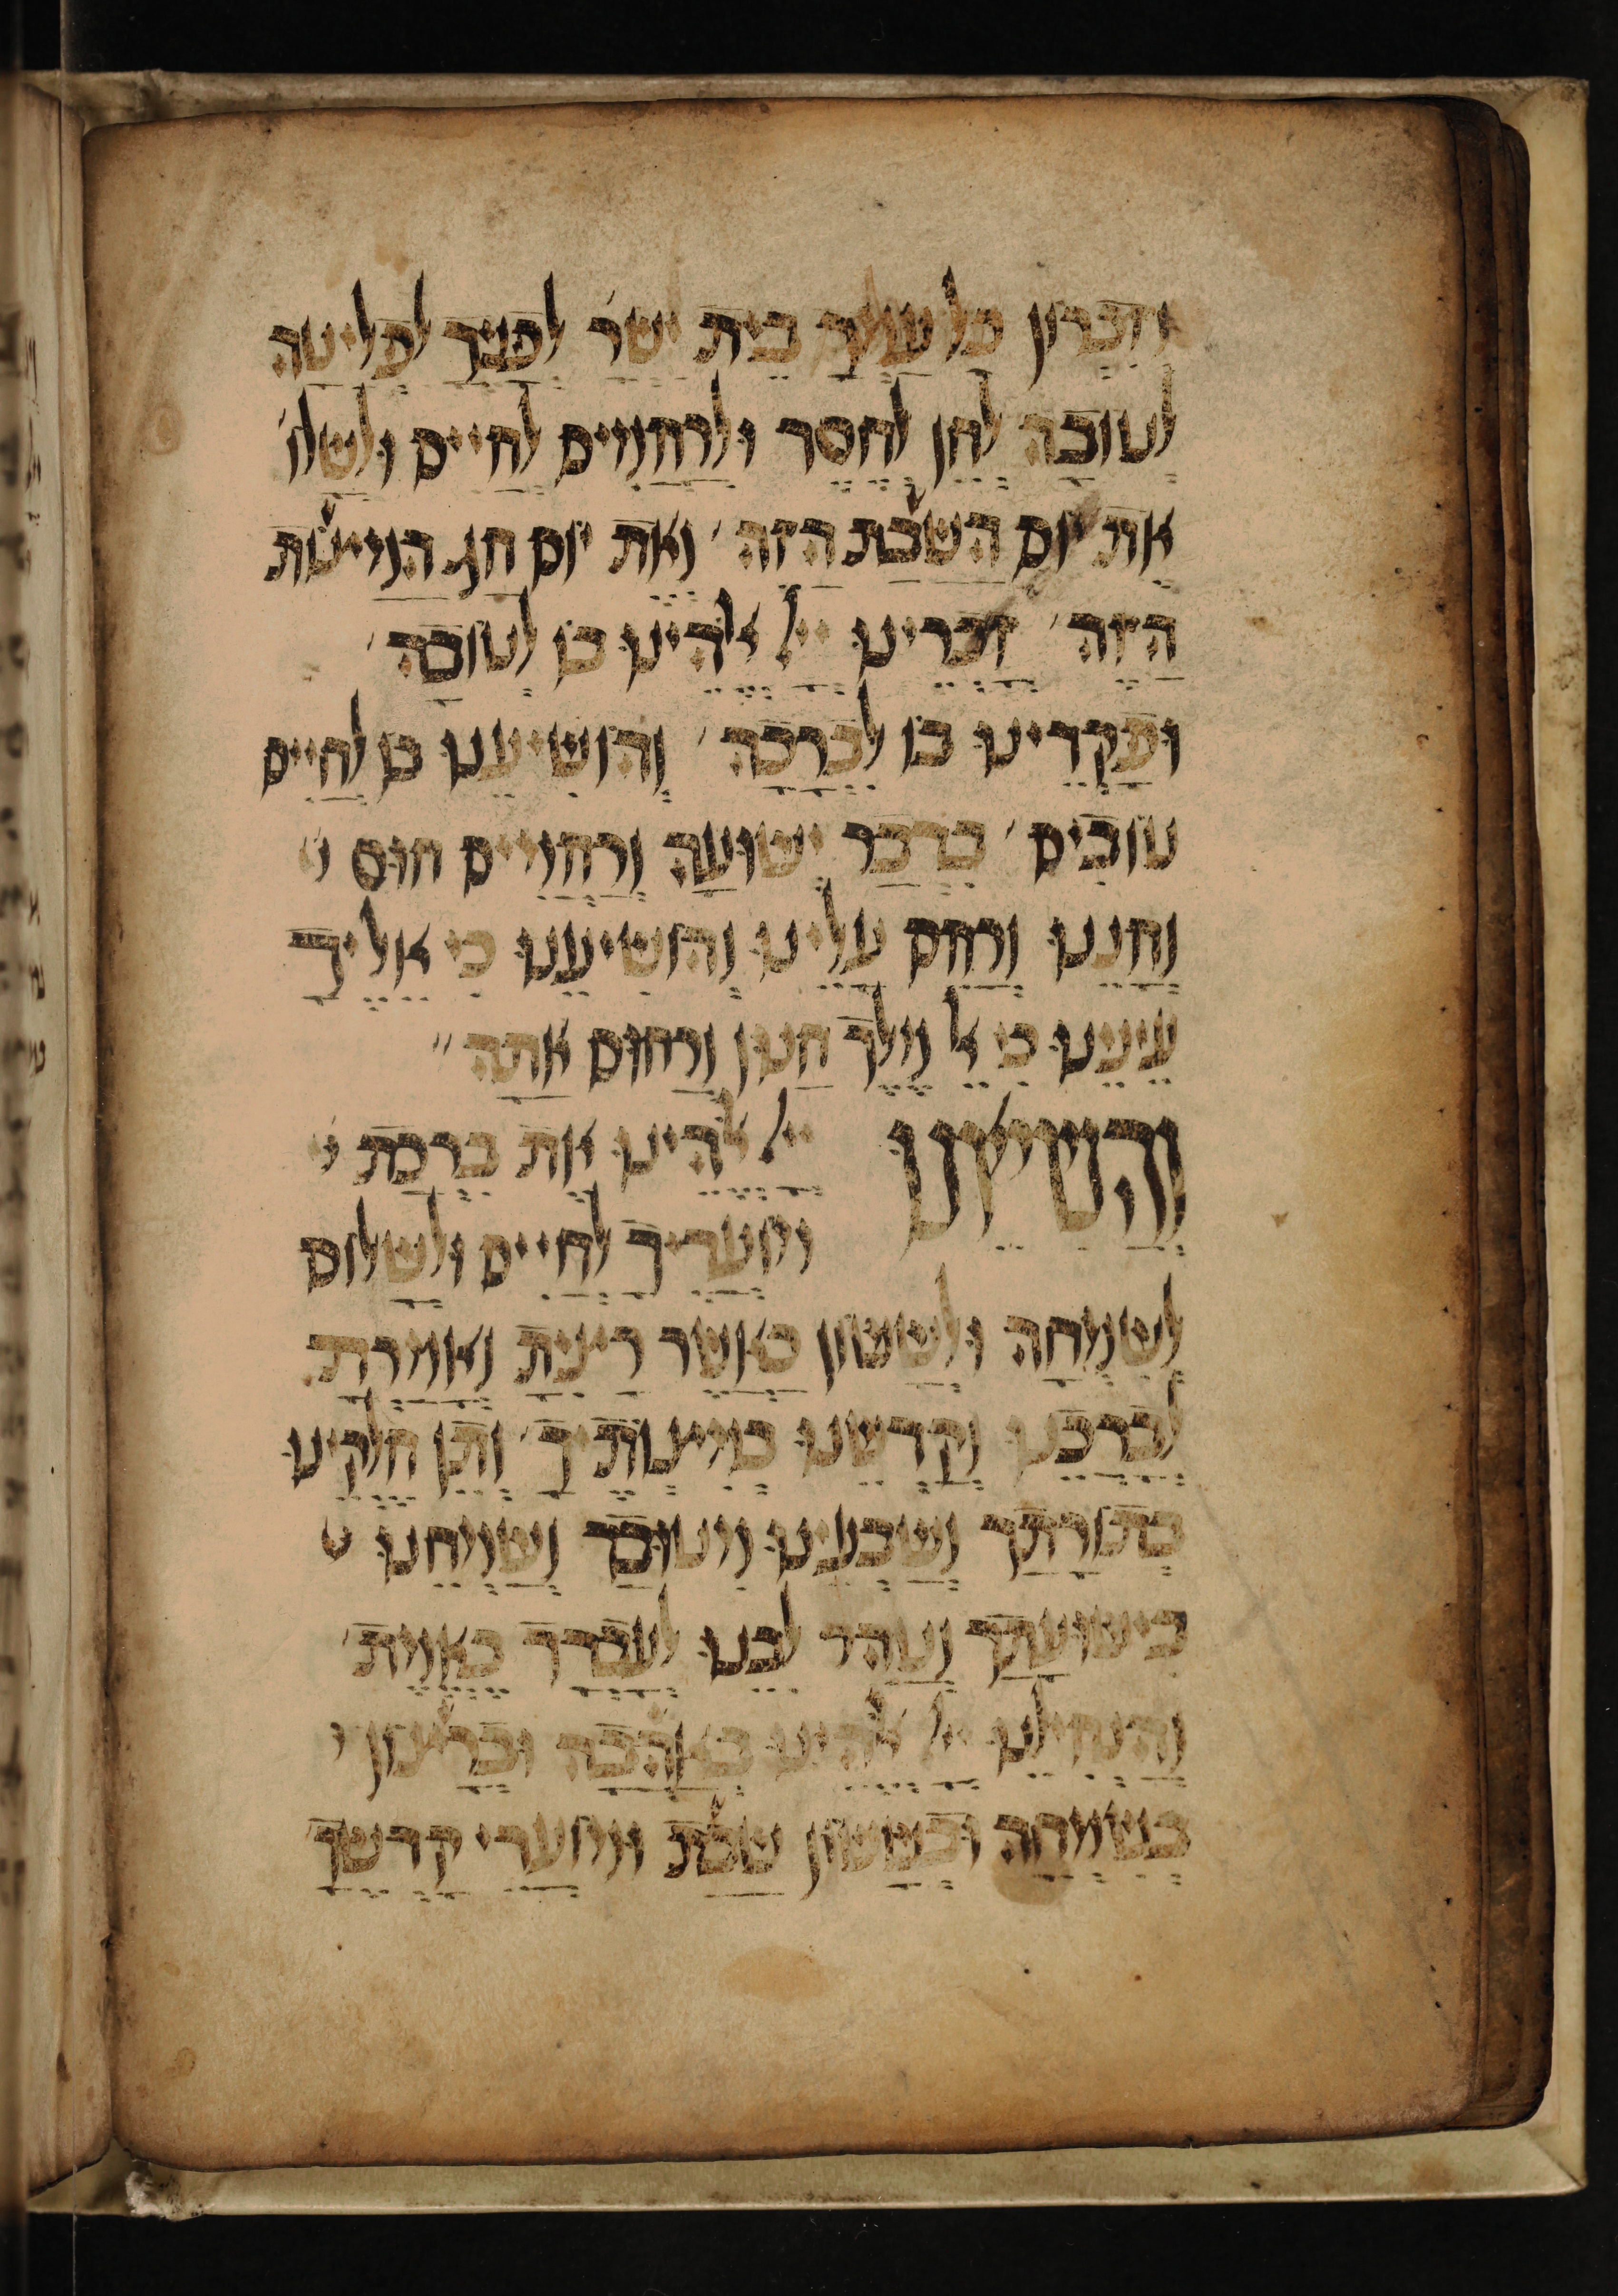 וזכרון כל עמך בית ישר׳ לפניך לפליטה
לטובה לחן לחסד ולרחמים לחיים ולשלו׳
את יום השבת הזה׳ ואת יום חג המצות
הזה׳ זכרינו ייי אלהינו בו לטובה׳
ופקדינו בו לברכה׳ והושיענו בו לחיים
טובים׳ בדבר ישועה ורחמים חוס
וחננו ורחם עלינו והושיענו כי אליך
עינינו כי אל מלך חנון ורחום אתה׳׳
והשיאנו ייי אלהינו את ברכת
מועדיך לחיים ולשלום
לשמחה ולששון כאשר רצית ואמרת
לברכנו וקדשנו במצותיך׳ ותן חלקינו
בתורתך ושבעינו מטובך ושמחנו
בישועתך וטהר לבנו לעבדך באמת׳
והנחילנו ייי אלהינו באהבה וברצון
בשמחה ובששון שבת ומועדי קדשך